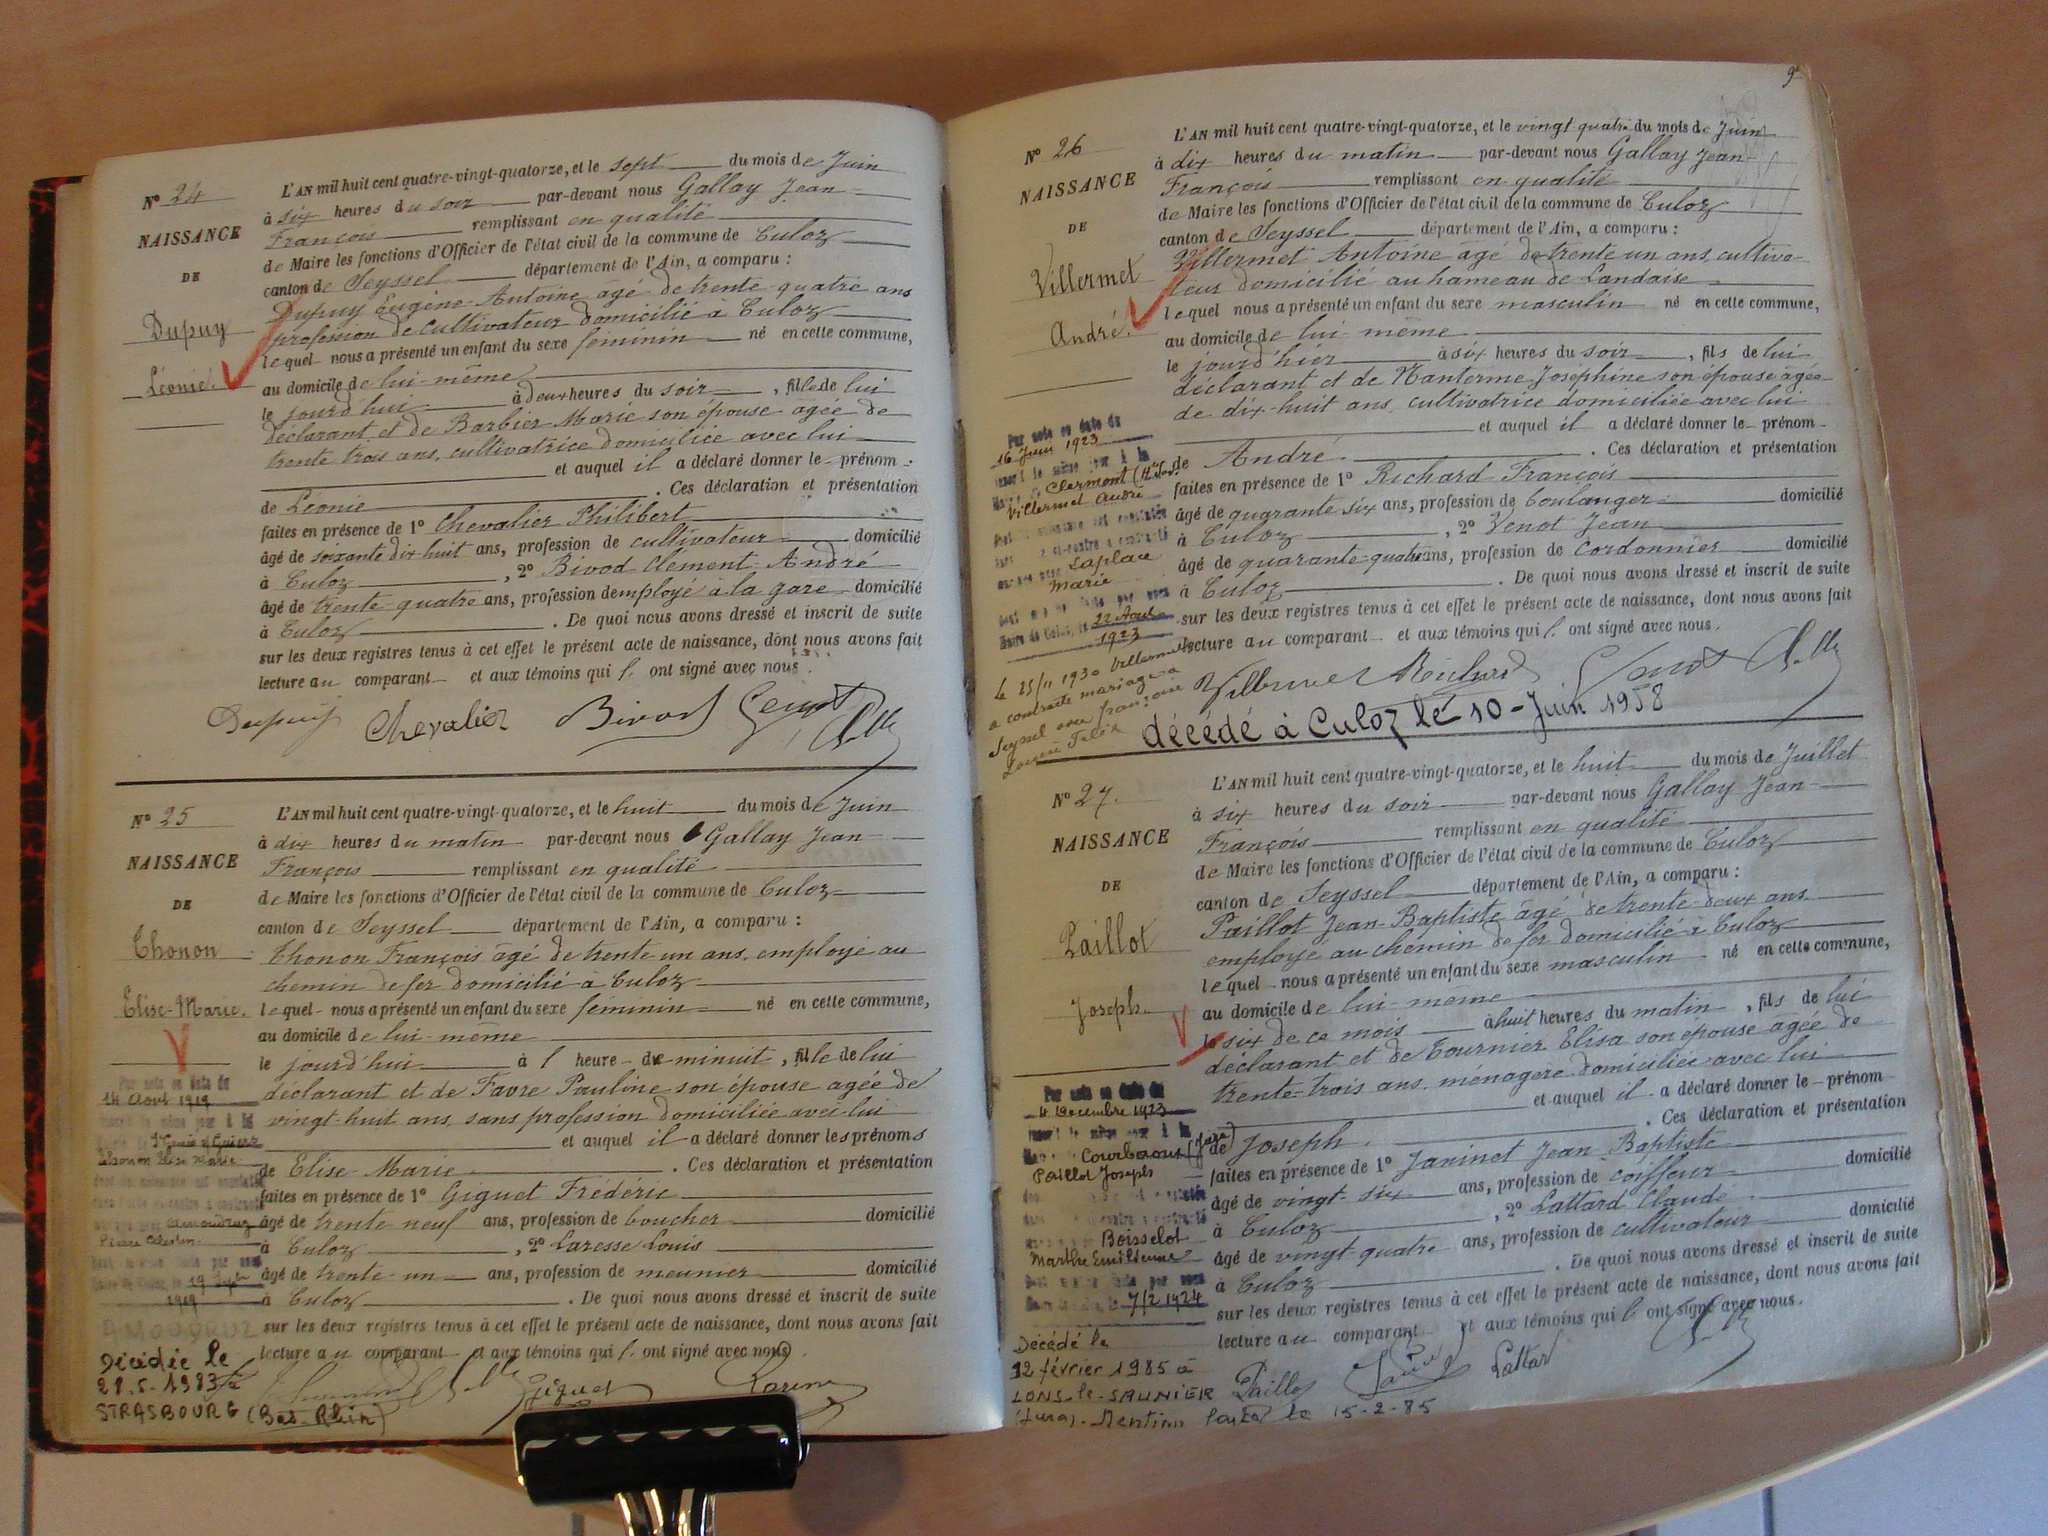 N° 24
NAISSANCE
DE
Dupuy
Léonie.
L'AN mil huit cent quatre-vingt-quatorze, et le sept du mois de Juin
à six heures du soir par-devant nous Gallay Jean-
François remplissant en qualité
de Maire les fonctions d'Officier de l'état civil de la commune de Culoz
canton de Seyssel département de l'Ain, a comparu :
Dupuy Eugène-Antoine âgé de trente-quatre ans
profession de cultivateur domicilié à Culoz
lequel nous a présenté un enfant du sexe féminin né en cette commune,
au domicile de lui-même
le jourd'hui à deux heures du soir, fille de lui
déclarant et de Barbier Marie son épouse âgée de
trente trois ans, cultivatrice domiciliée avec lui
et auquel il a déclaré donner le prénom
de Léonie. Ces déclaration et présentation
faites en présence de 1° Chevalier Philibert
âgé de soixante dix huit ans, profession de cultivateur domicilié
à Culoz, 2° Bivod Clément-André
âgé de trente-quatre ans, profession d employé à la gare domicilié
à Culoz. De quoi nous avons dressé et inscrit de suite
sur les deux registres tenus à cet effet le présent acte de naissance, dont nous avons fait
lecture au comparant et aux témoins qui ont signé avec nous.
Dupuy Chevalier Bivod
N° 25
NAISSANCE
DE
Thonon
Elise-Marie.
L'AN mil huit cent quatre-vingt-quatorze, et le huit du mois de Juin
à dix heures du matin par-devant nous Gallay Jean-
François remplissant en qualité
de Maire les fonctions d'Officier de l'état civil de la commune de Culoz
canton de Seyssel département de l'Ain, a comparu :
Thonon François âgé de trente un ans, employé au
chemin de fer domicilié à Culoz
lequel nous a présenté un enfant du sexe féminin né en cette commune,
au domicile de lui-même
le jourd'hui à 1 heure de minuit, fille de lui
déclarant et de Favre Pauline son épouse âgée de
vingt-huit ans, sans profession domiciliée avec lui
et auquel il a déclaré donner les prénoms
de Elise-Marie. Ces déclaration et présentation
faites en présence de 1° Giguet Frédéric
âgé de trente neuf ans, profession de boucher domicilié
à Culoz, 2° Laresse Louis
âgé de trente-un ans, profession de meunier domicilié
à Culoz. De quoi nous avons dressé et inscrit de suite
sur les deux registres tenus à cet effet le présent acte de naissance, dont nous avons fait
lecture au comparant et aux témoins qui ont signé avec nous.
Giguet
Par note en date du
14 Août 1919
Thonon Elise Marie
Pierre Célestin
19 Septe
1919
Décédée le
21.5.1983 à
STRASBOURG (Bas-Rhin)
9
N° 26
NAISSANCE
DE
Villermet
André.
L'AN mil huit cent quatre-vingt-quatorze, et le vingt quatre du mois de Juin
à dix heures du matin par-devant nous Gallay Jean-
François remplissant en qualité
de Maire les fonctions d'Officier de l'état civil de la commune de Culoz
canton de Seyssel département de l'Ain, a comparu :
Villermet Antoine âgé de trente un ans, cultiva-
teur domicilié au hameau de Landaise
lequel nous a présenté un enfant du sexe masculin né en cette commune,
au domicile de lui-même
le jourd'hier à six heures du soir, fils de lui
déclarant et de Manterme Joséphine son épouse âgée
de dix-huit ans, cultivatrice domiciliée avec lui
et auquel il a déclaré donner le prénom
de André. Ces déclaration et présentation
faites en présence de 1° Richard François
âgé de quarante six ans, profession de boulanger domicilié
à Culoz, 2° Venot Jean
âgé de quarante-quatre ans, profession de cordonnier domicilié
à Culoz. De quoi nous avons dressé et inscrit de suite
sur les deux registres tenus à cet effet le présent acte de naissance, dont nous avons fait
lecture au comparant et aux témoins qui ont signé avec nous.
Par note en date du
16 Juin 1923
Clermont
Villermet André
Laplace
Marie
22 Août
1923
Le 25/11 1930 Villermet
a contracté mariage à
Seyssel avec Françoise
Richard
décédé à Culoz le 10-Juin 1958
N° 27.
NAISSANCE
DE
Paillot
Joseph.
L'AN mil huit cent quatre-vingt-quatorze, et le huit du mois de Juillet
à six heures du soir par-devant nous Gallay Jean-
François remplissant en qualité
de Maire les fonctions d'Officier de l'état civil de la commune de Culoz
canton de Seyssel département de l'Ain, a comparu :
Paillot Jean-Baptiste âgé de trente-deux ans
employé au chemin de fer domicilié à Culoz
lequel nous a présenté un enfant du sexe masculin né en cette commune,
au domicile de lui-même
le six de ce mois à huit heures du matin, fils de lui
déclarant et de Tournier Elisa son épouse âgée de
trente-trois ans, ménagère domiciliée avec lui
et auquel il a déclaré donner le prénom
de Joseph. Ces déclaration et présentation
faites en présence de 1° Janinet Jean-Baptiste
âgé de vingt-six ans, profession de coiffeur domicilié
à Culoz, 2° Lattard Claude
âgé de vingt-quatre ans, profession de cultivateur domicilié
à Culoz. De quoi nous avons dressé et inscrit de suite
sur les deux registres tenus à cet effet le présent acte de naissance, dont nous avons fait
lecture au comparant et aux témoins qui ont signé avec nous.
Par note en date du
4 Décembre 1923
(Jura)
Paillot Joseph
Boisselot
Marthe Emilienne
7/2 1924
Décédé le
12 février 1985 à
LONS-le-SAUNIER
(Jura). Mention le 15-2-85
Paillot Lattard